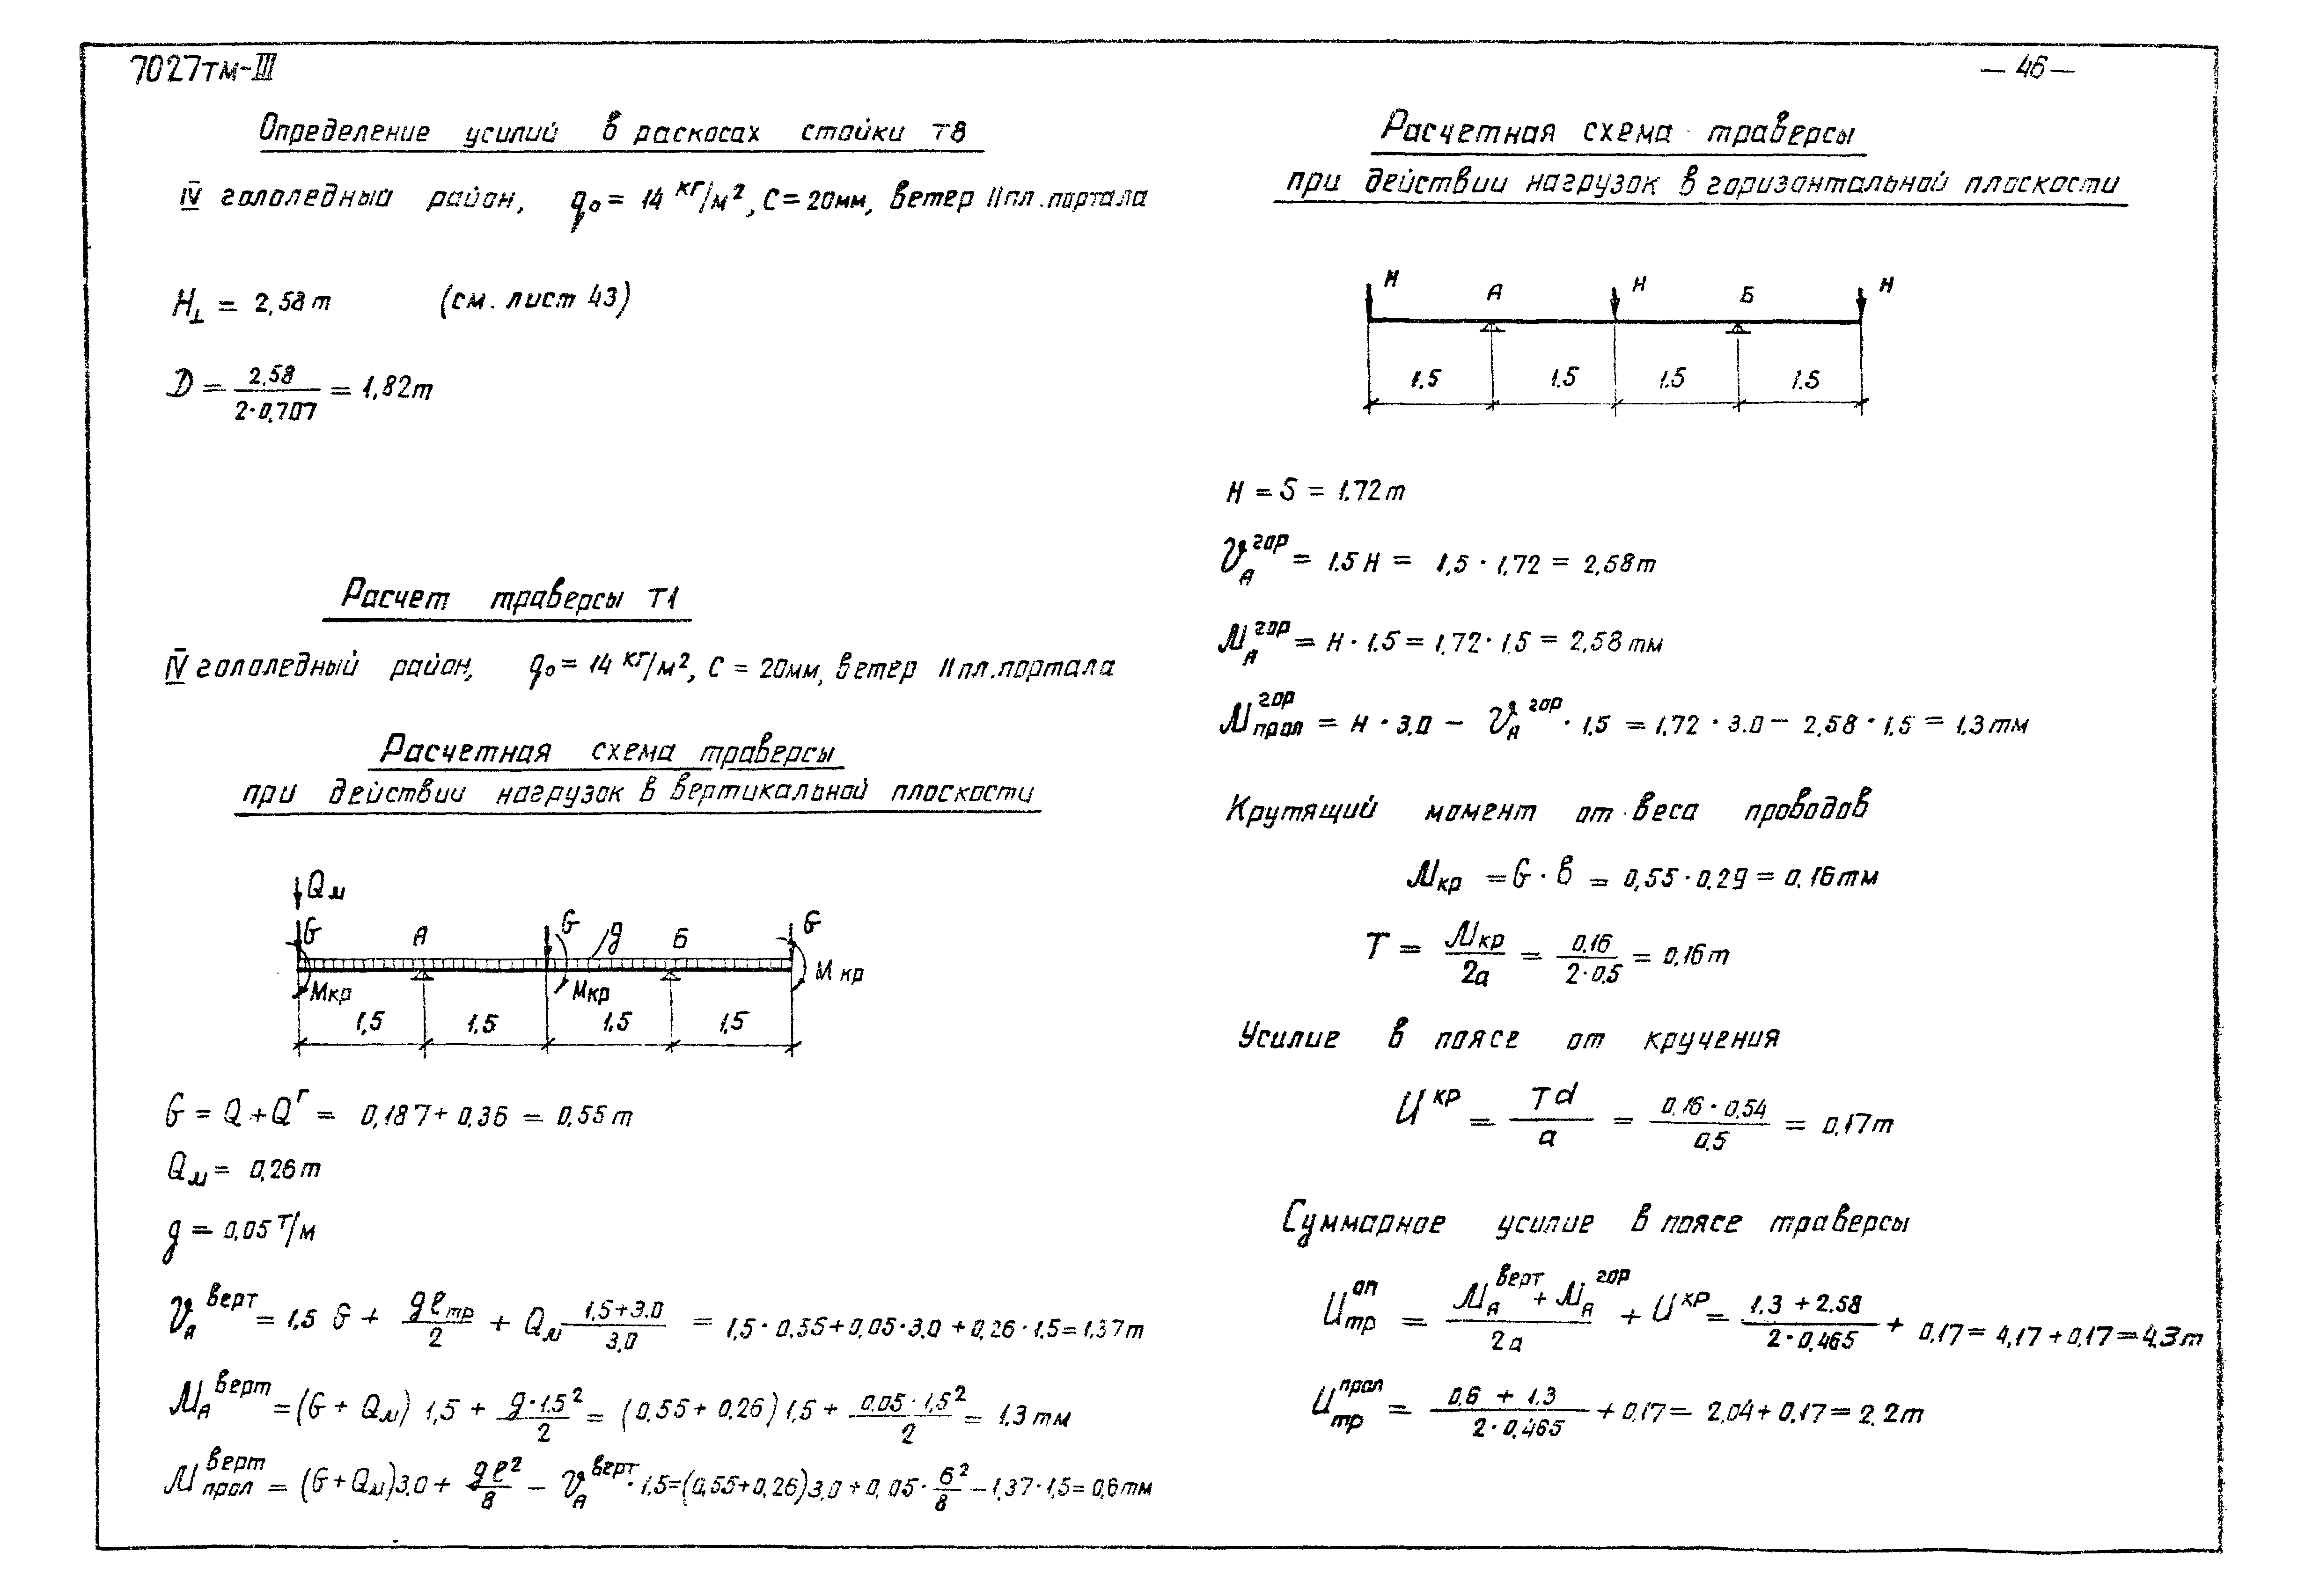 7027тм-III
— 46 —
Определение усилий в раскосах стойки т8
IV гололедный район, q₀ = 14 кг/м², С = 20мм, ветер II пл. портала
H⊥ = 2,58т (см. лист 43)
D = 2,58 / 2·0,707 = 1,82т
Расчет траверсы Т1
IV гололедный район, q₀ = 14 кг/м², С = 20мм, ветер II пл. портала
Расчетная схема траверсы
при действии нагрузок в вертикальной плоскости
Qм
G А G g Б G
Мкр Мкр Мкр
1,5 1.5 1.5 1.5
G = Q + Qᴦ = 0,187 + 0,36 = 0,55т
Qм = 0,26т
g = 0,05 т/м
V_A^верт = 1,5 G + gℓтр / 2 + Qм 1,5+3.0 / 3.0 = 1,5 · 0,55 + 0,05 · 3,0 + 0,26 · 1.5 = 1,37т
M_A^верт = (G + Qм) 1,5 + g·1.5² / 2 = (0,55 + 0,26) 1,5 + 0,05 · 1,5² / 2 = 1.3 тм
M_прол^верт = (G + Qм) 3,0 + gℓ² / 8 − V_A^верт · 1,5 = (0,55 + 0,26) 3,0 + 0,05 · 6² / 8 − 1,37 · 1,5 = 0,6 тм
Расчетная схема траверсы
при действии нагрузок в горизонтальной плоскости
Н А Н Б Н
1.5 1.5 1.5 1.5
H = S = 1.72т
V_A^гор = 1.5 H = 1,5 · 1,72 = 2,58т
M_A^гор = H · 1.5 = 1,72 · 1,5 = 2,58 тм
M_прол^гор = H · 3.0 − V_A^гор · 1,5 = 1,72 · 3.0 − 2,58 · 1,5 = 1,3 тм
Крутящий момент от веса проводов
Mкр = G · в = 0,55 · 0,29 = 0,16тм
T = Mкр / 2а = 0,16 / 2·0,5 = 0,16т
Усилие в поясе от кручения
U^кр = Td / а = 0,16 · 0,54 / 0,5 = 0,17т
Суммарное усилие в поясе траверсы
U_тр^оп = M_A^верт + M_A^гор / 2а + U^кр = 1.3 + 2.58 / 2 · 0,465 + 0,17 = 4,17 + 0,17 = 4,3т
U_тр^прол = 0,6 + 1.3 / 2 · 0,465 + 0,17 = 2,04 + 0,17 = 2.2т